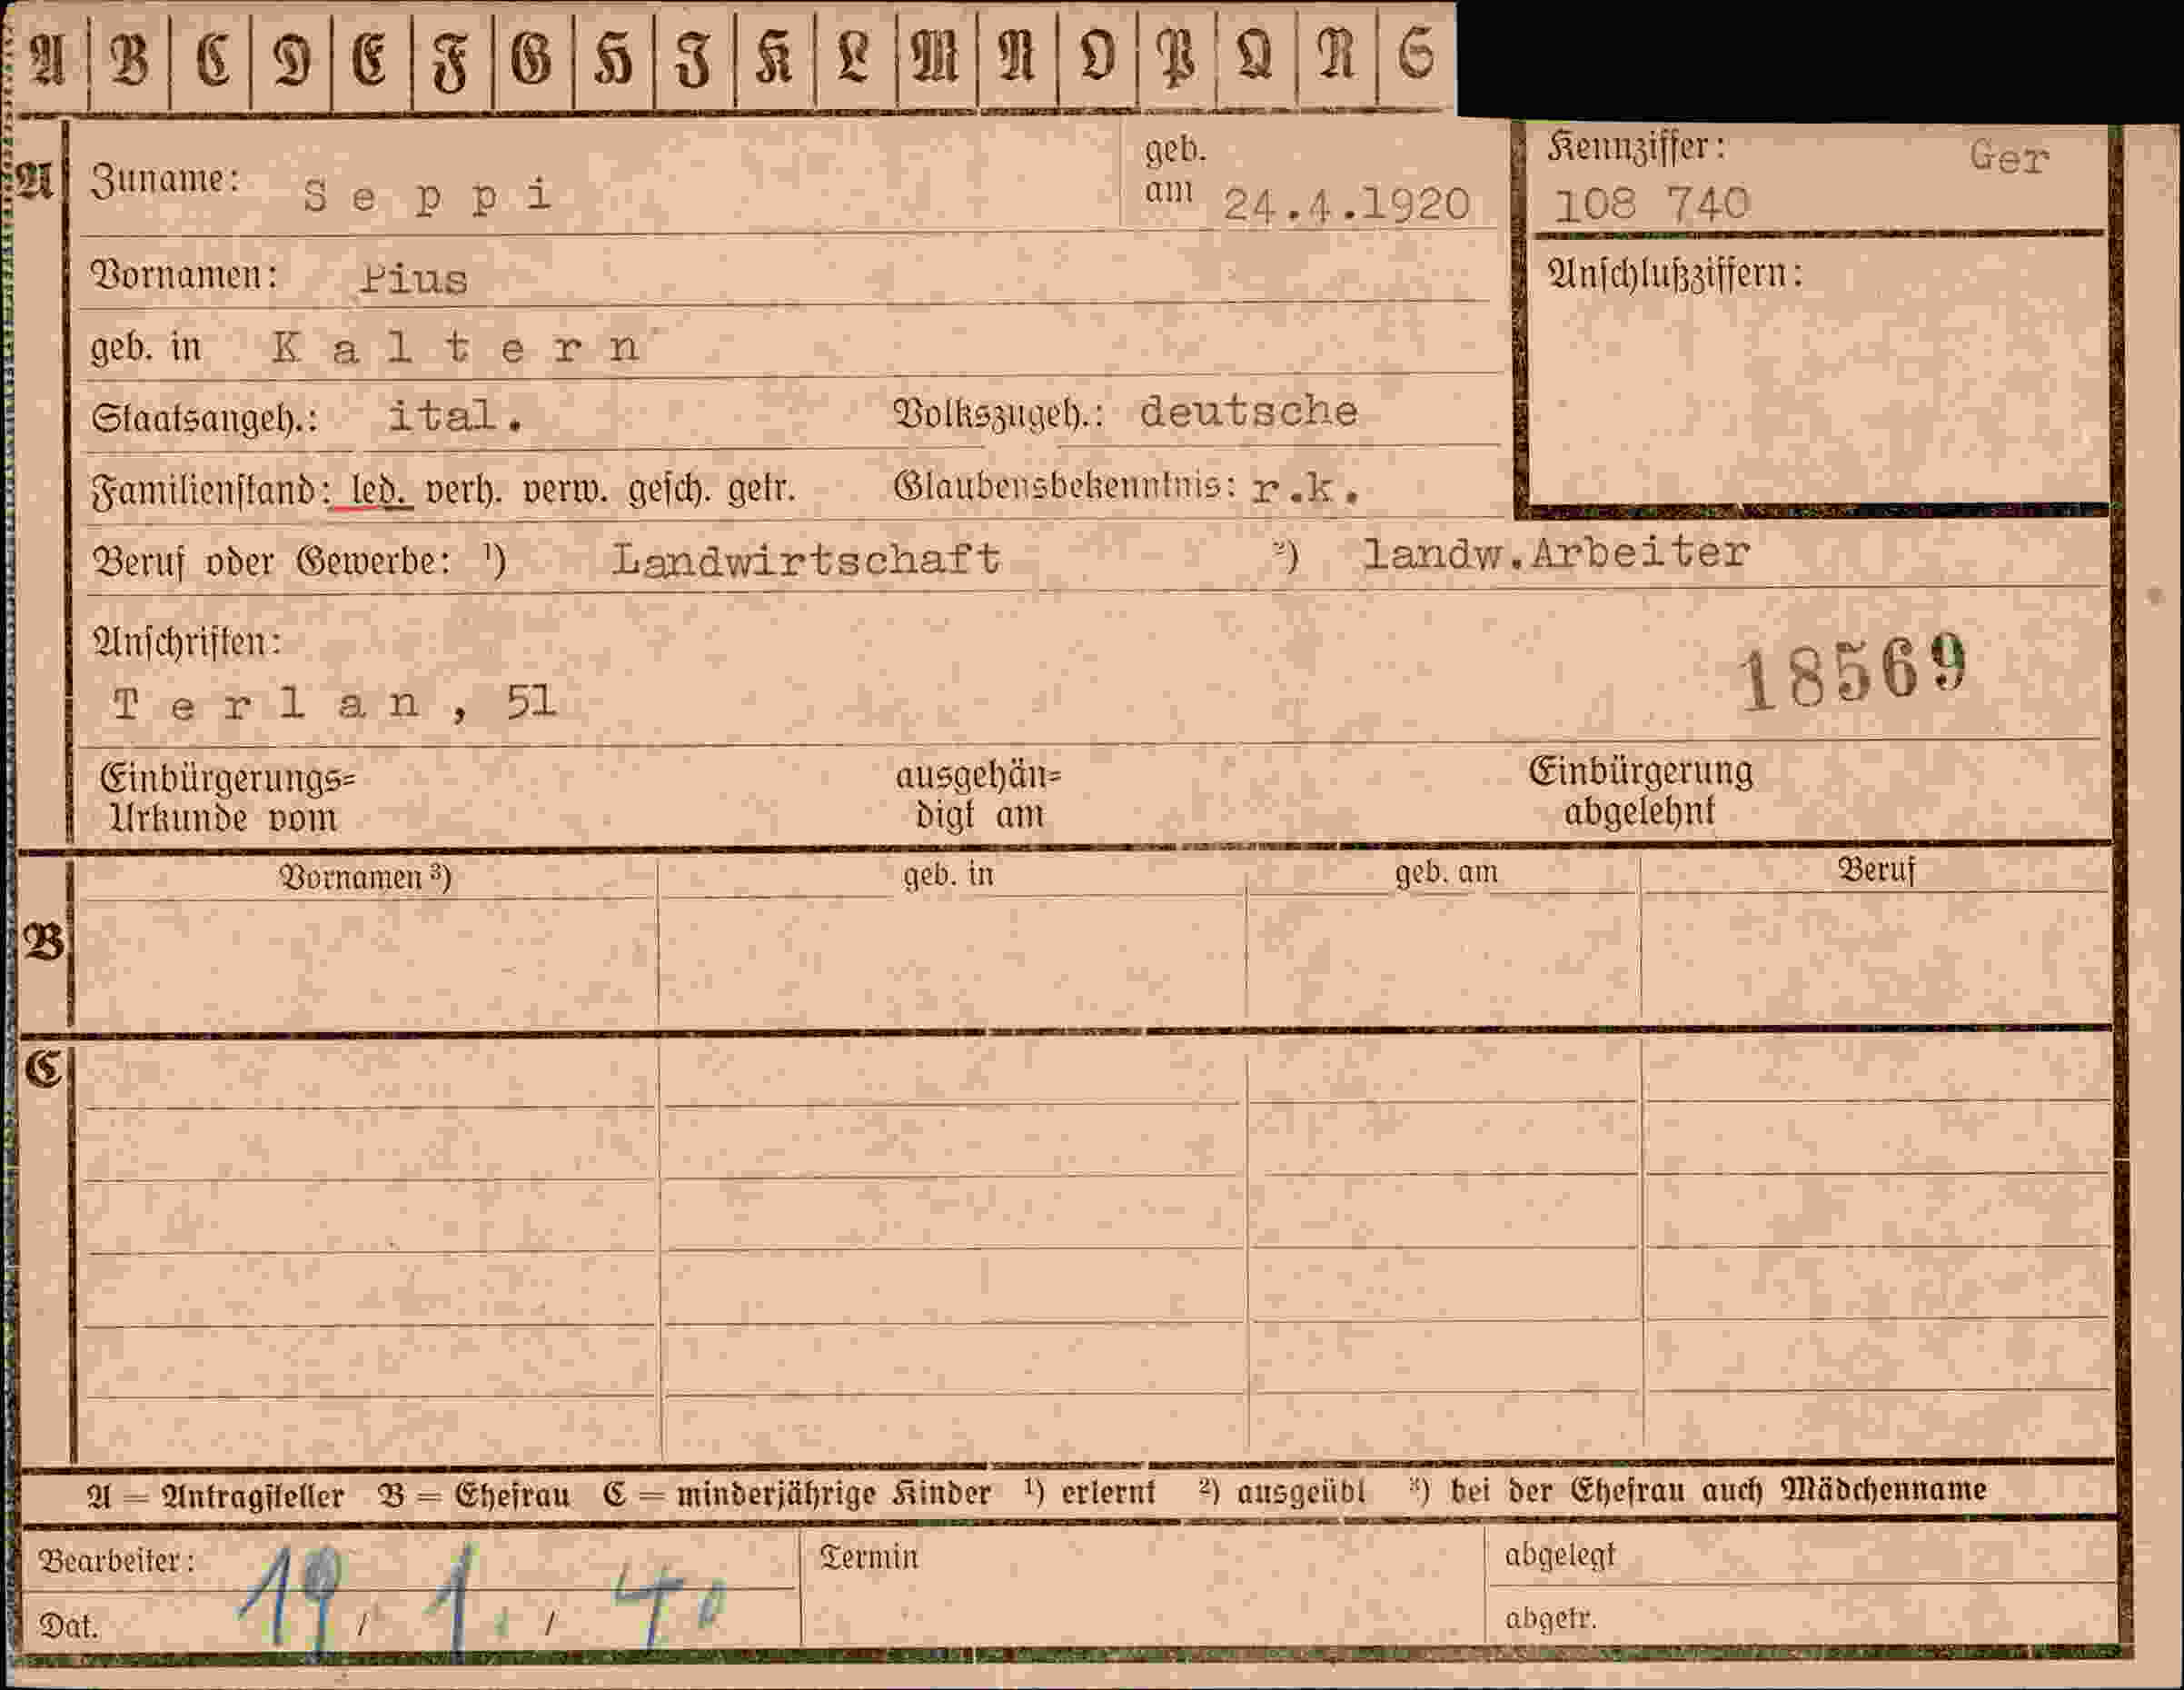 A B C D E F G H I K L M N O P Q R S
A Zuname: Seppi geb. am 24.4.1920 Kennziffer: Ger 108 740
Vornamen: Pius Anschlußziffern:
geb. in Kaltern
Staatsangeh.: ital. Volkszugeh.: deutsche
Familienstand: led. verh. verw. gesch. getr. Glaubensbekenntnis: r.k.
Beruf oder Gewerbe: ¹) Landwirtschaft ²) landw.Arbeiter
Anschriften:
18569
Terlan, 51
Einbürgerungs= ausgehän= Einbürgerung
Urkunde vom digt am abgelehnt
Vornamen ³) geb. in geb. am Beruf
B
C
A = Antragsteller B = Ehefrau C = minderjährige Kinder ¹) erlernt ²) ausgeübt ³) bei der Ehefrau auch Mädchenname
Bearbeiter: Termin abgelegt
Dat. 19 / 1. / 40 abgetr.